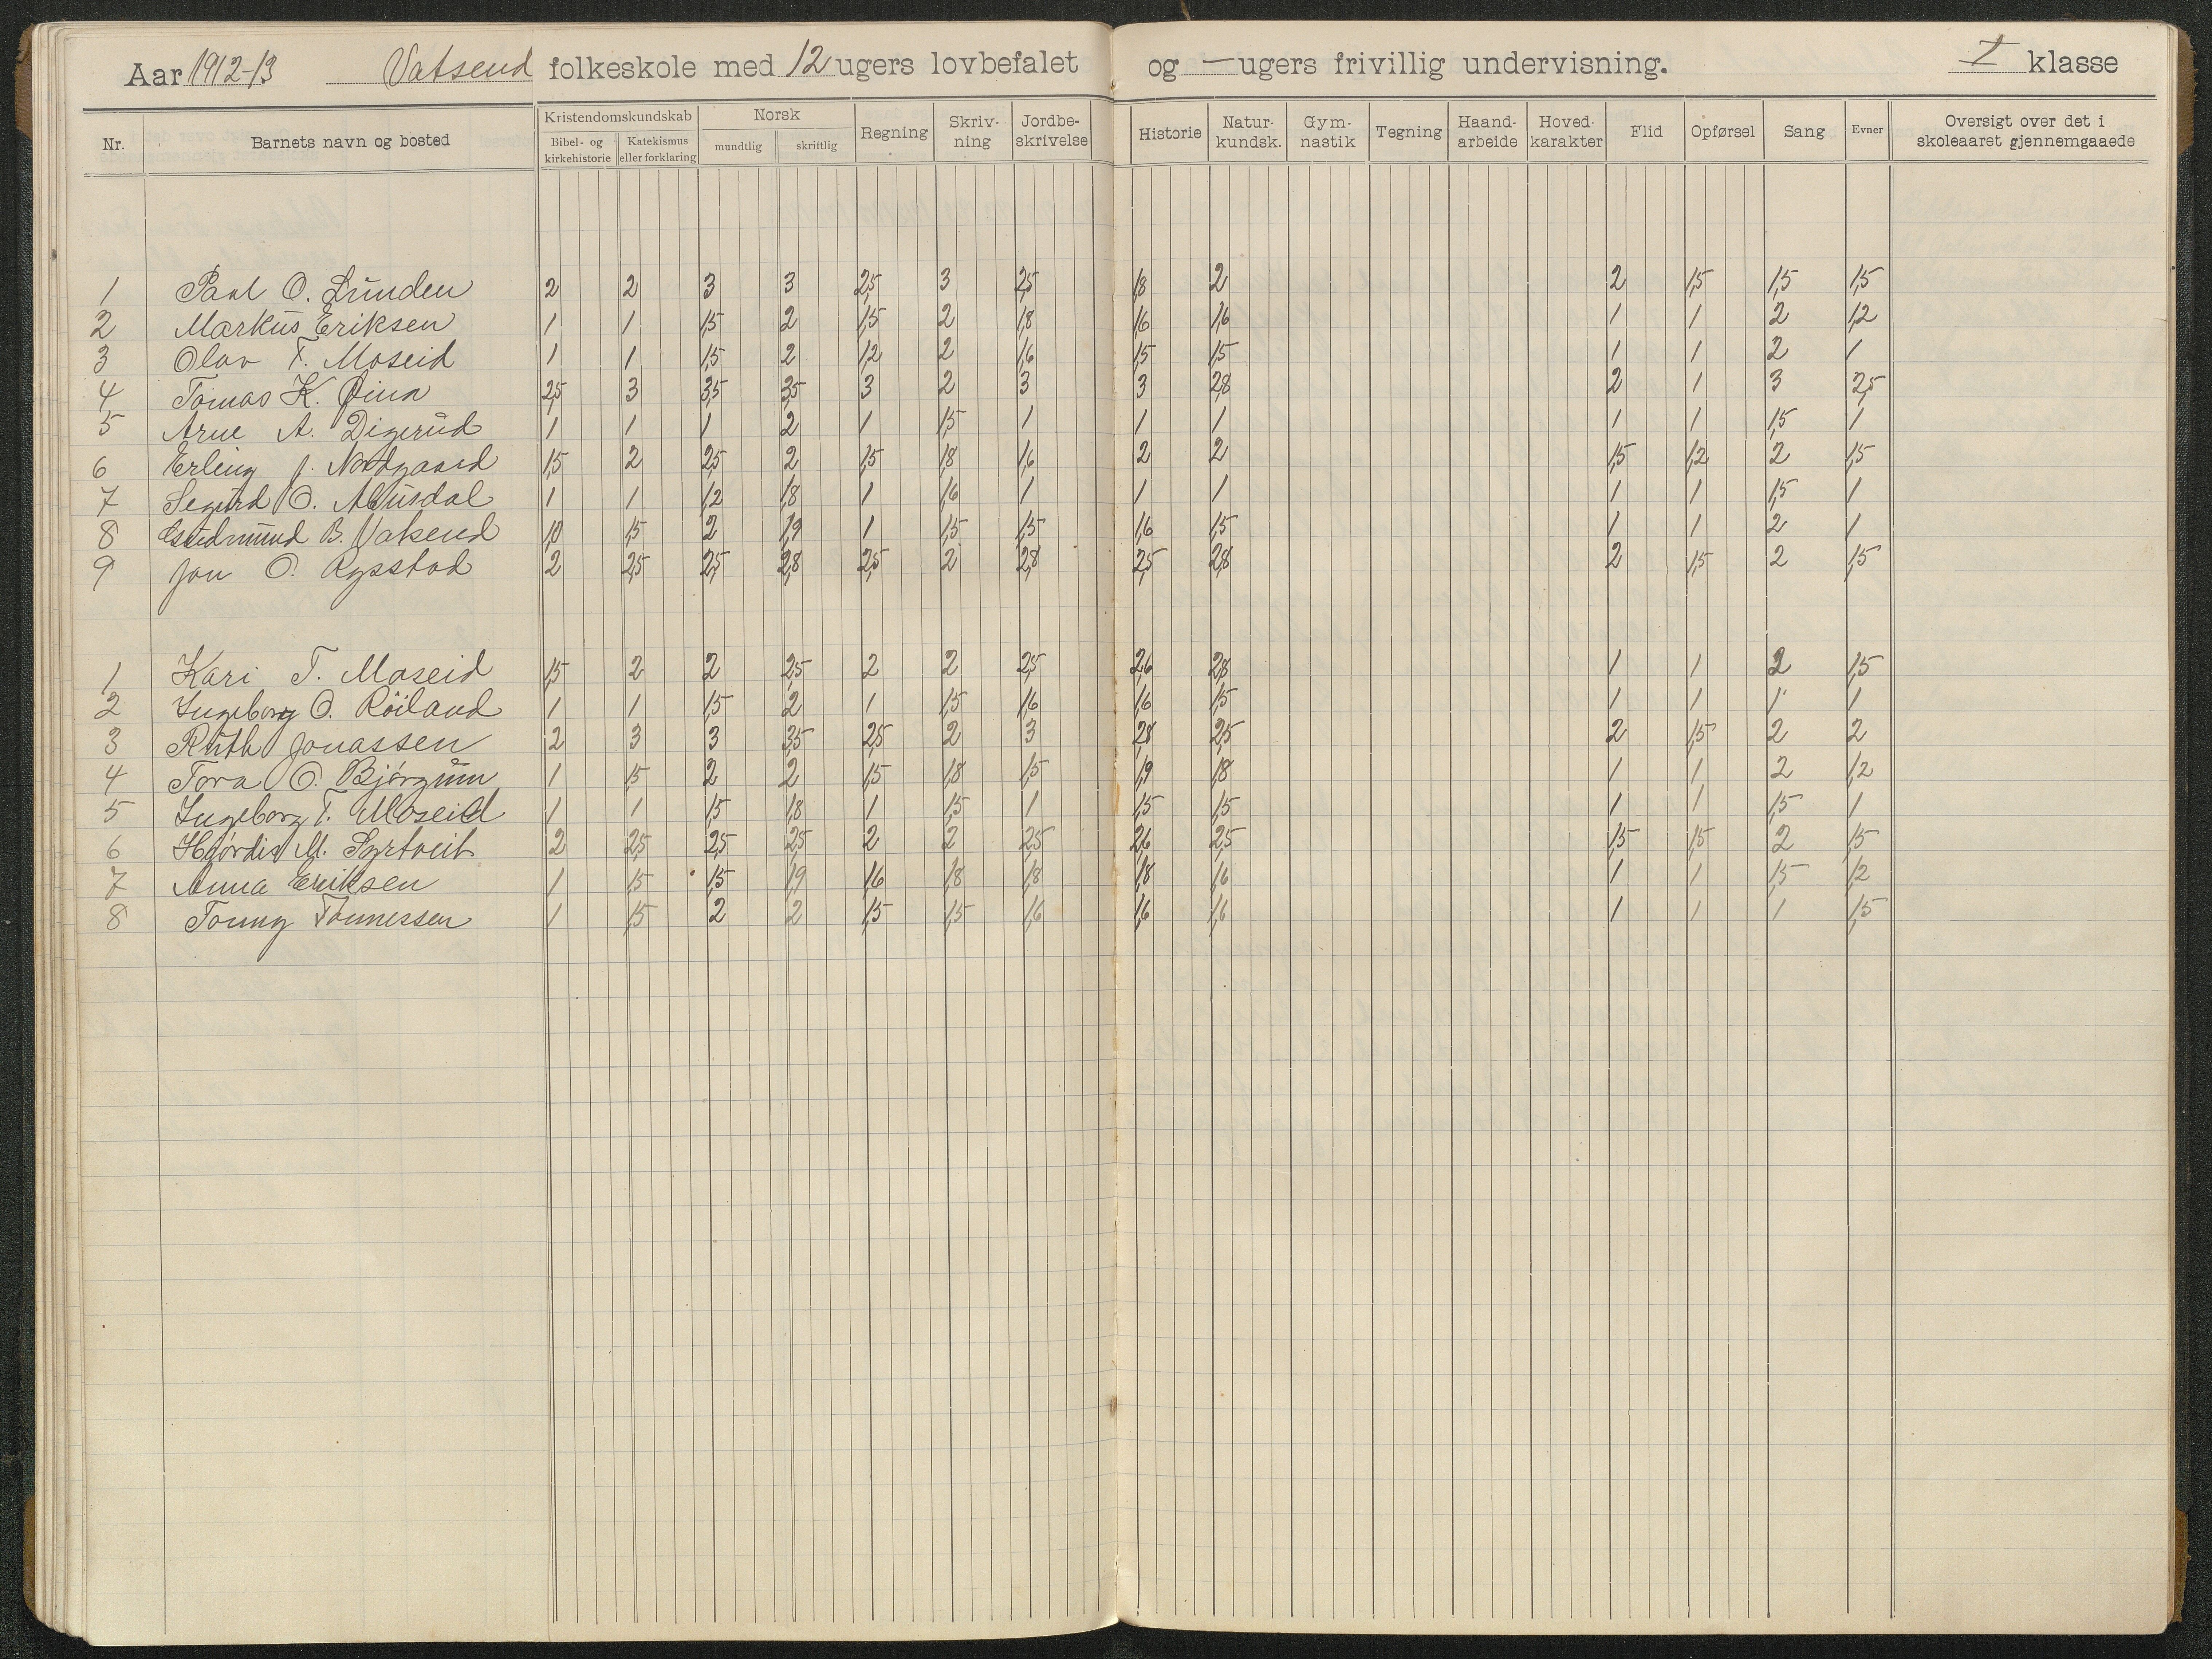 Aar 1912-13 Vatsend folkeskole med 12 ugers lovbefalet og — ugers frivillig undervisning. I klasse
Nr. Barnets navn og bosted Kristendomskundskab Bibel- og kirkehistorie Katekismus eller forklaring Norsk mundtlig skriftlig Regning Skriv-ning Jordbe-skrivelse Historie Natur-kundsk. Gym-nastik Tegning Haand-arbeide Hoved-karakter Flid Opførsel Sang Evner Oversigt over det i skoleaaret gjennemgaaede
1 Paul O. Lunden 2 2 3 3 2,5 3 2,5 1,8 2 2 1,5 1,5 1,5
2 Markus Eriksen 1 1 1,5 2 1,5 2 1,8 1,6 1,6 1 1 2 1,2
3 Olav T. Moseid 1 1 1,5 2 1,2 2 1,6 1,5 1,5 1 1 2 1
4 Tomas K. 2,5 3 3,5 3,5 3 2 3 3 2,8 2 1 3 2,5
5 Arne A. Digerud 1 1 1 2 1 1,5 1 1 1 1 1 1,5 1
6 Erling J. Nordgaard 1,5 2 2,5 2 1,5 1,8 1,6 2 2 1,5 1,2 2 1,5
7 Segurd O. Abusdal 1 1 1,2 1,8 1 1,6 1 1 1 1 1 1,5 1
8 Gudmund B. Vatsend 1,0 1,5 2 1,9 1 1,5 1,5 1,6 1,5 1 1 2 1
9 Jon O. Rysstad 2 2,5 2,5 2,8 2,5 2 2,8 2,5 2,8 2 1,5 2 1,5
1 Kari T. Moseid 1,5 2 2 2,5 2 2 2,5 2,6 2,8 1 1 2 1,5
2 Ingeborg O. Röiland 1 1 1,5 2 1 1,5 1,6 1,6 1,5 1 1 1 1
3 Ruth Jonassen 2 3 3 3,5 2,5 2 3 2,8 2,5 2 1,5 2 2
4 Tora O. Bjórgum 1 1,5 2 2 1,5 1,8 1,5 1,9 1,8 1 1 2 1,2
5 Ingeborg T. Moseid 1 1 1,5 1,8 1 1,5 1 1,5 1,5 1 1 1,5 1
6 Hjórdis M. Syrtveit 2 2,5 2,5 2,5 2 2 2,5 2,6 2,5 1,5 1,5 2 1,5
7 Anna Eriksen 1 1,5 1,5 1,9 1,6 1,8 1,8 1,8 1,6 1 1 1,5 1,2
8 Tonny Tonnessen 1 1,5 2 2 1,5 1,5 1,6 1,6 1,6 1 1 1 1,5